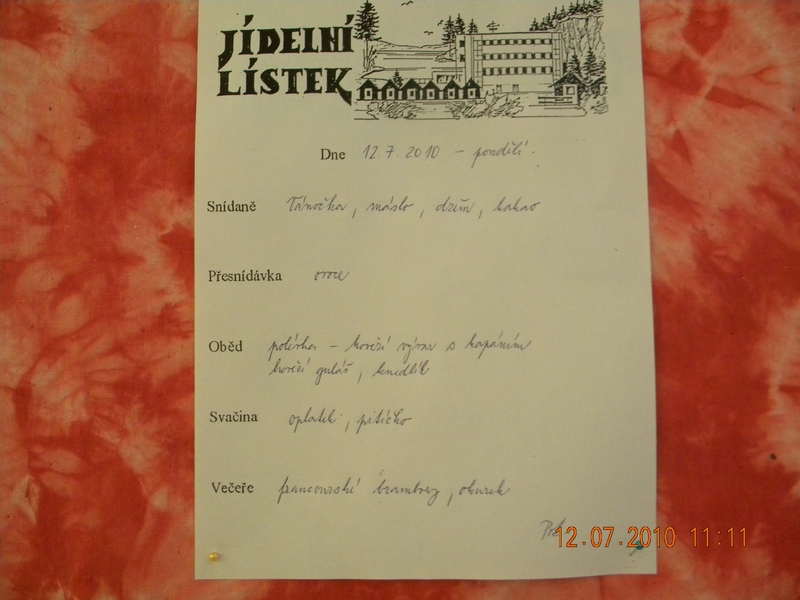 JÍDELNÍ
LÍSTEK
Dne 12.7.2010 – pondělí -
Snídaně Vánočka, máslo, džem, kakao
Přesnídávka ovoce
Oběd polévka – hovězí vývar s kapáním
hovězí guláš, knedlík
Svačina oplatek, pitíčko
Večeře francouzské brambory, okurek
12.07.2010 11:11